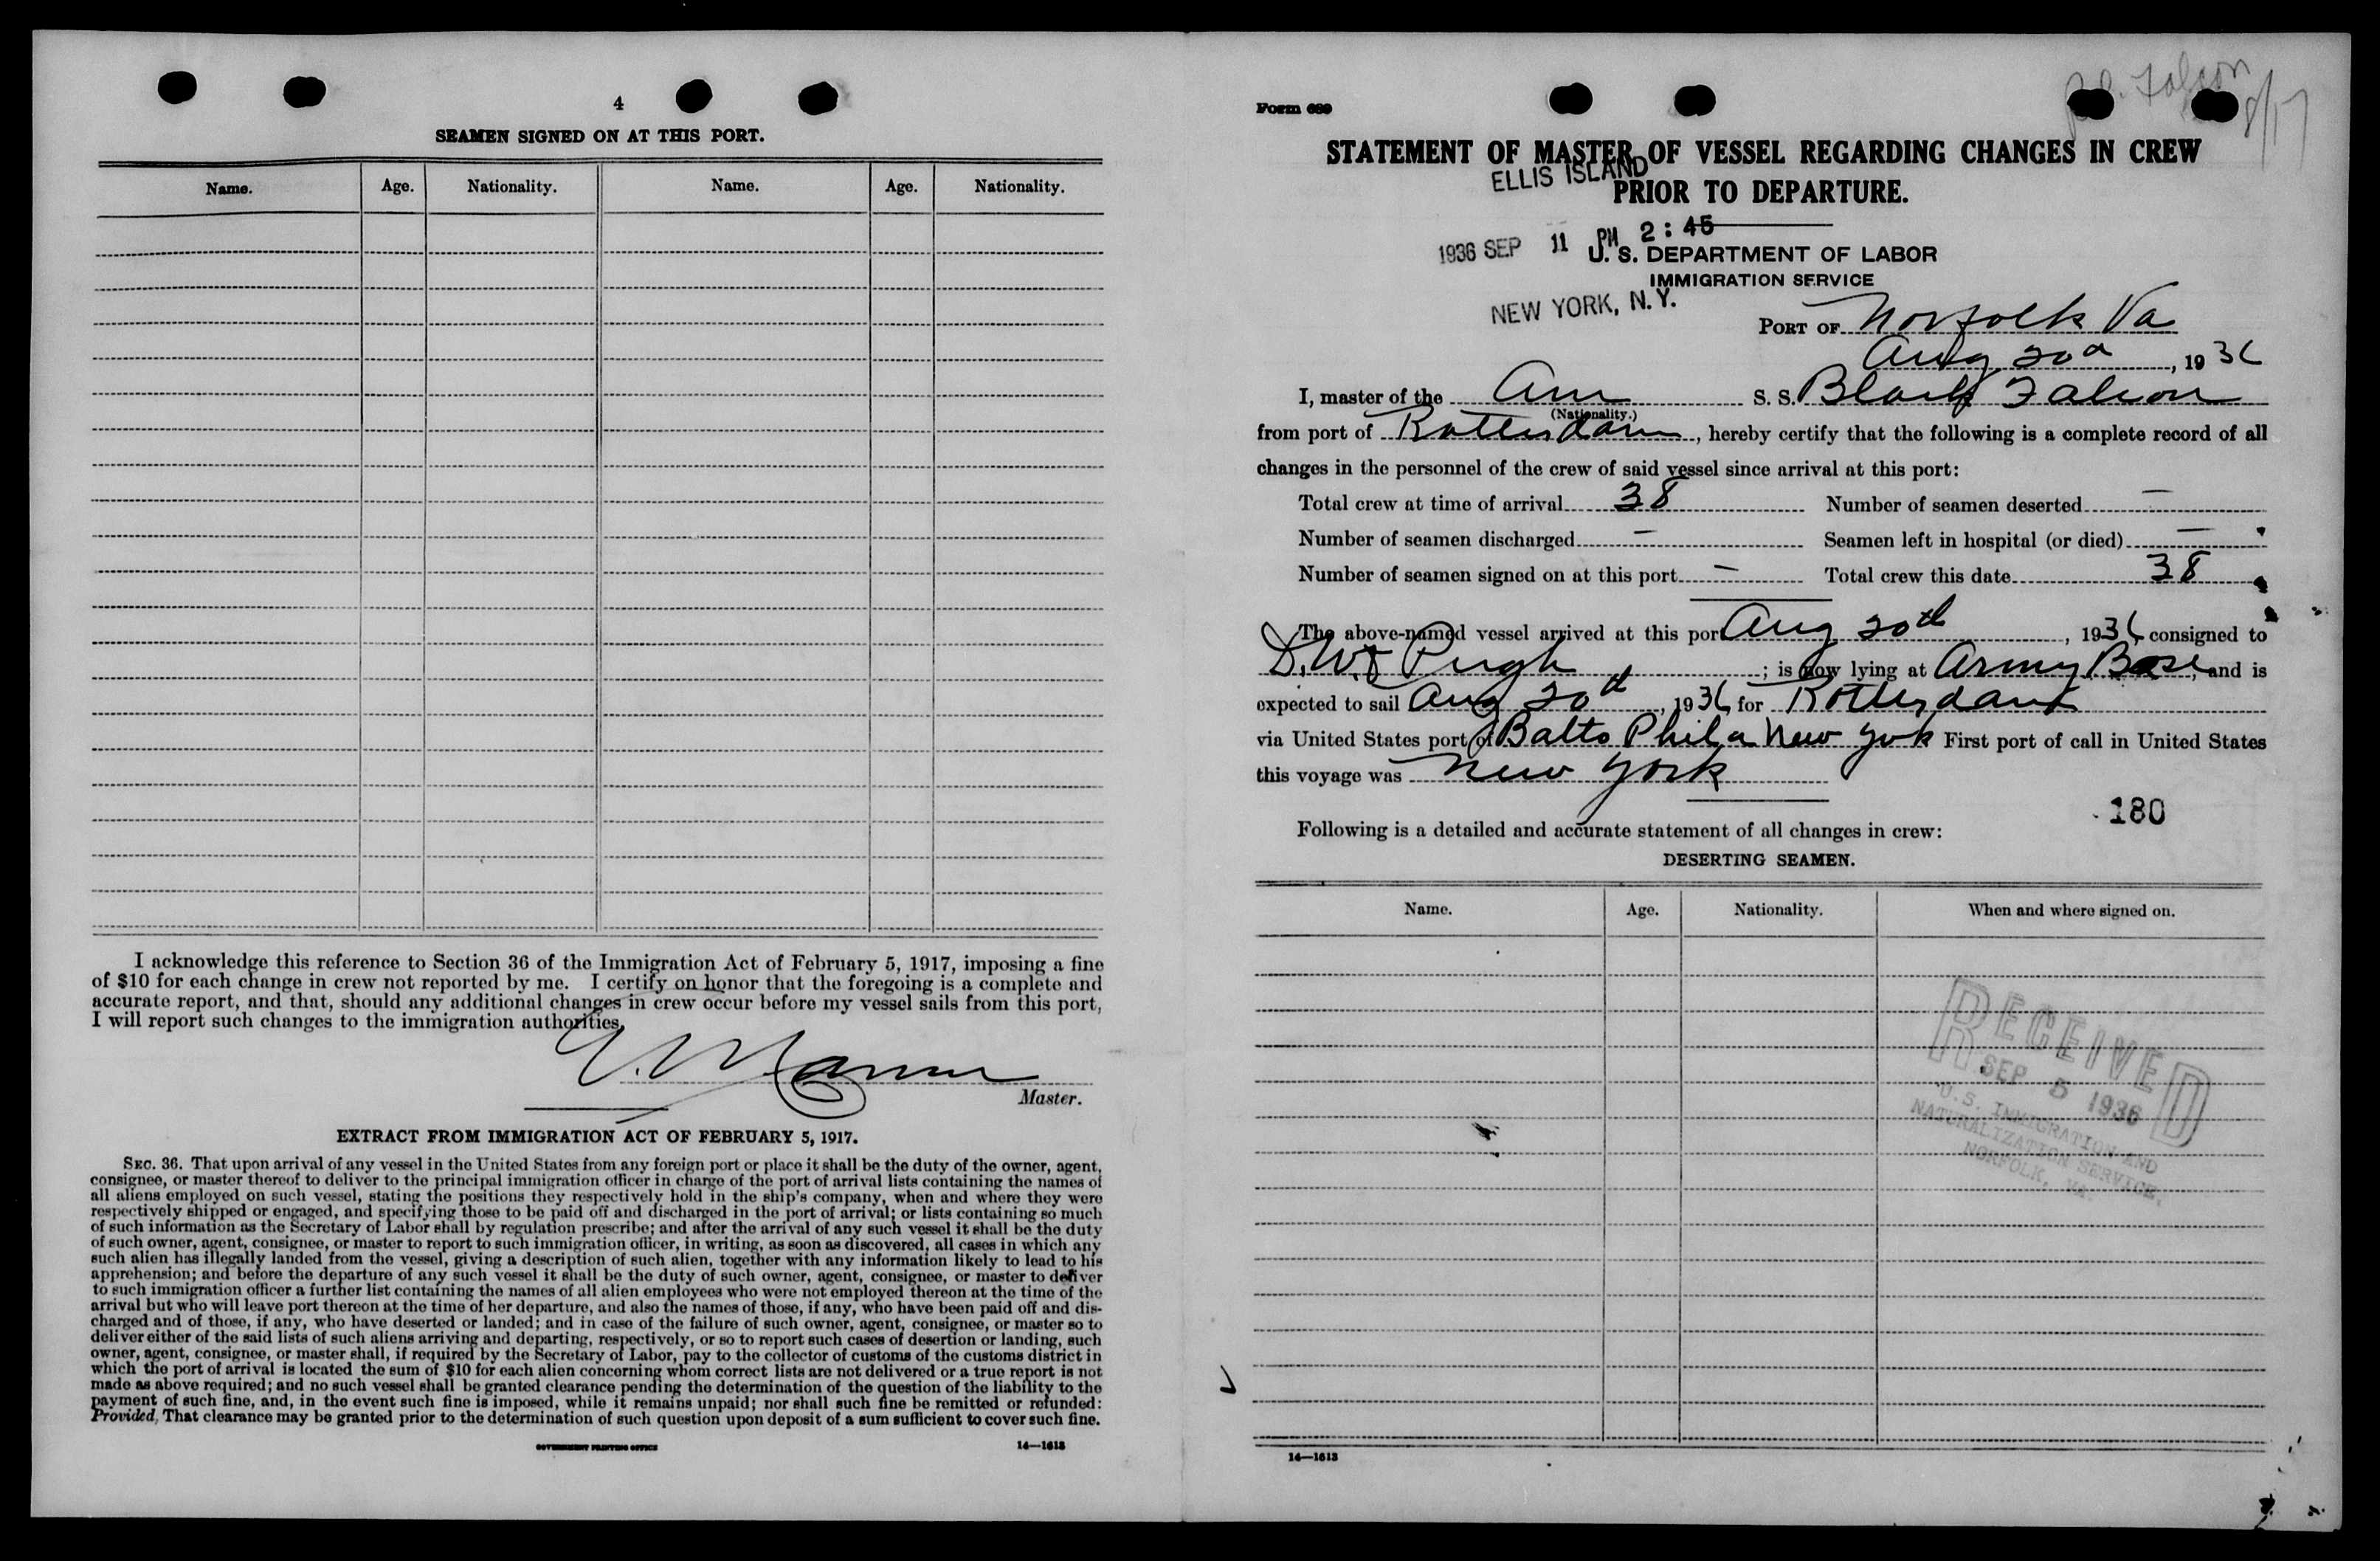 4
SEAMEN SIGNED ON AT THIS PORT.
Name. Age. Nationality. Name. Age. Nationality.
I acknowledge this reference to Section 36 of the Immigration Act of February 5, 1917, imposing a fine
of $10 for each change in crew not reported by me. I certify on honor that the foregoing is a complete and
accurate report, and that, should any additional changes in crew occur before my vessel sails from this port,
I will report such changes to the immigration authorities.
Master.
EXTRACT FROM IMMIGRATION ACT OF FEBRUARY 5, 1917.
SEC. 36. That upon arrival of any vessel in the United States from any foreign port or place it shall be the duty of the owner, agent,
consignee, or master thereof to deliver to the principal immigration officer in charge of the port of arrival lists containing the names of
all aliens employed on such vessel, stating the positions they respectively hold in the ship's company, when and where they were
respectively shipped or engaged, and specifying those to be paid off and discharged in the port of arrival; or lists containing so much
of such information as the Secretary of Labor shall by regulation prescribe; and after the arrival of any such vessel it shall be the duty
of such owner, agent, consignee, or master to report to such immigration officer, in writing, as soon as discovered, all cases in which any
such alien has illegally landed from the vessel, giving a description of such alien, together with any information likely to lead to his
apprehension; and before the departure of any such vessel it shall be the duty of such owner, agent, consignee, or master to deliver
to such immigration officer a further list containing the names of all alien employees who were not employed thereon at the time of the
arrival but who will leave port thereon at the time of her departure, and also the names of those, if any, who have been paid off and dis-
charged and of those, if any, who have deserted or landed; and in case of the failure of such owner, agent, consignee, or master so to
deliver either of the said lists of such aliens arriving and departing, respectively, or so to report such cases of desertion or landing, such
owner, agent, consignee, or master shall, if required by the Secretary of Labor, pay to the collector of customs of the customs district in
which the port of arrival is located the sum of $10 for each alien concerning whom correct lists are not delivered or a true report is not
made as above required; and no such vessel shall be granted clearance pending the determination of the question of the liability to the
payment of such fine, and, in the event such fine is imposed, while it remains unpaid; nor shall such fine be remitted or refunded:
Provided, That clearance may be granted prior to the determination of such question upon deposit of a sum sufficient to cover such fine.
GOVERNMENT PRINTING OFFICE 14—1613
Falcon
8/17
Form 689
STATEMENT OF MASTER OF VESSEL REGARDING CHANGES IN CREW
ELLIS ISLAND
PRIOR TO DEPARTURE.
1936 SEP 11 PM 2:45
U. S. DEPARTMENT OF LABOR
IMMIGRATION SERVICE
NEW YORK, N.Y.
PORT OF Norfolk Va
Aug 20th, 1936
I, master of the Am S. S. Black Falcon
(Nationality.)
from port of Rotterdam, hereby certify that the following is a complete record of all
changes in the personnel of the crew of said vessel since arrival at this port:
Total crew at time of arrival 38 Number of seamen deserted —
Number of seamen discharged — Seamen left in hospital (or died) —
Number of seamen signed on at this port — Total crew this date 38
The above-named vessel arrived at this port Aug 20th, 1936, consigned to
Pugh; is now lying at Army Base, and is
expected to sail Aug 20th, 1936 for Rotterdam
via United States port of Balto Phila New York First port of call in United States
this voyage was New York
180
Following is a detailed and accurate statement of all changes in crew:
DESERTING SEAMEN.
Name. Age. Nationality. When and where signed on.
RECEIVED
SEP 5 1936
U.S. IMMIGRATION AND
NATURALIZATION SERVICE,
NORFOLK, VA.
14—1613